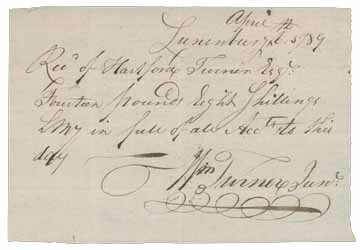 April
Lunenburgh 1789
Recd of Hartford Turner Esqr
Fourteen pounds Eight Shillings
LMy in full of all Acctts this
day
Wm Turner Junr